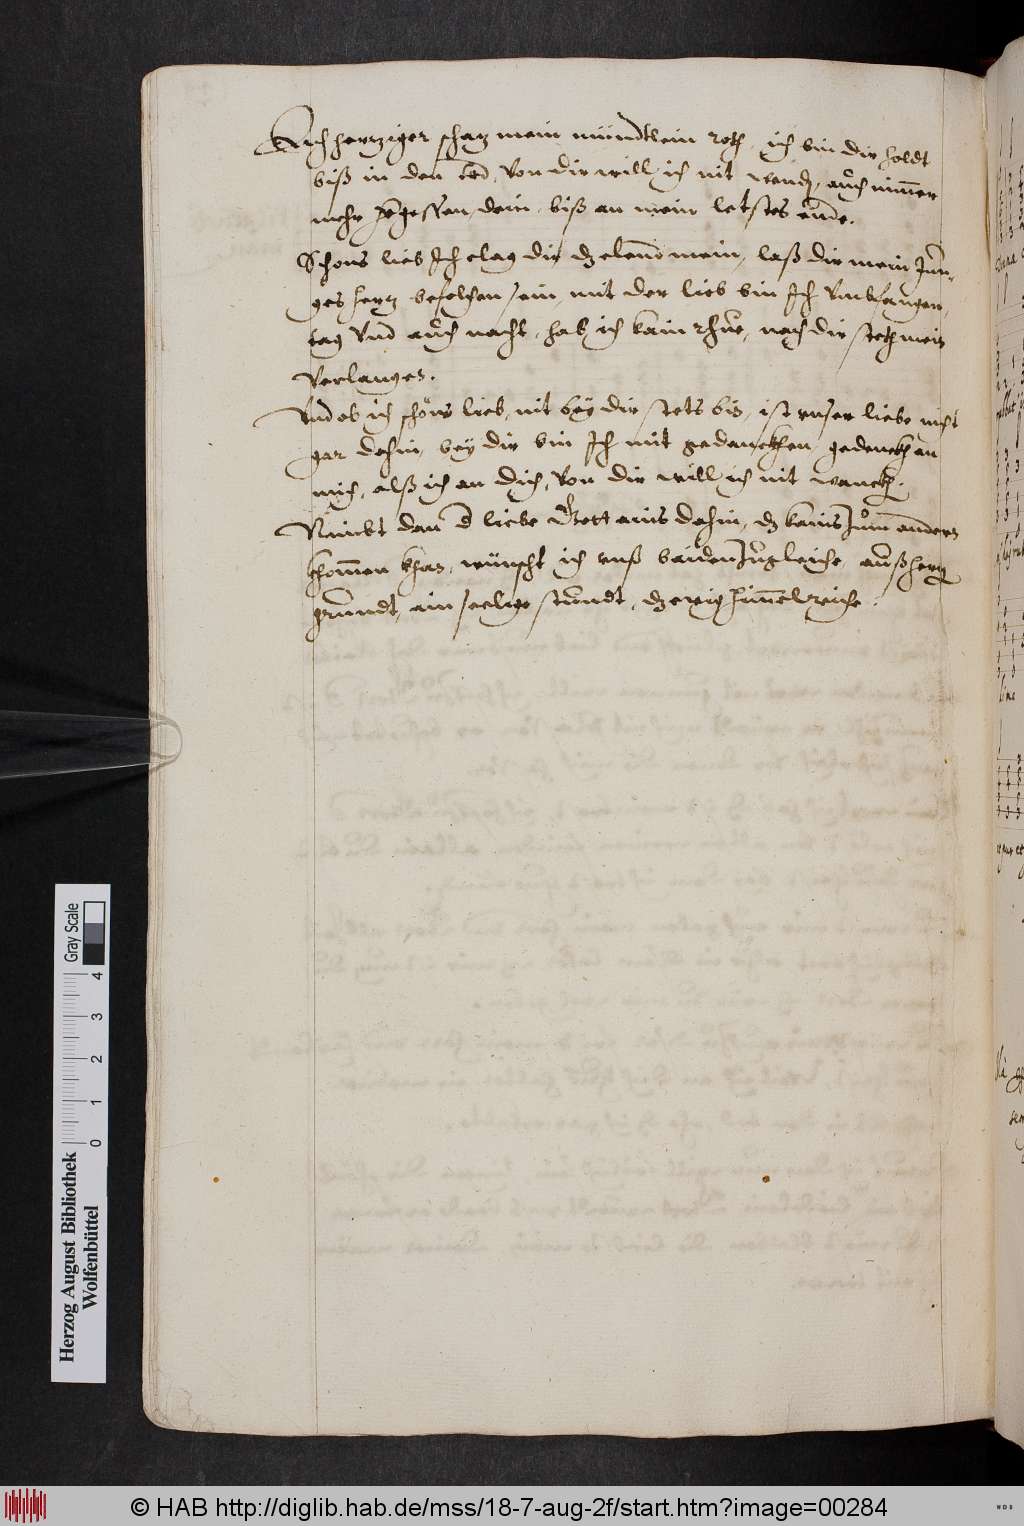 Ach hertziger schatz mein mündtlein roth, ich bin dir holdt
biß in den tod, von dir will ich nit wend, auch nimer
mehr vergessen dein, biß an mein letstes ende.
Schons lieb Ich clag dir dz elend mein, laß dir mein Jun-
ges hertz befolhen sein, mit der lieb bin Ich umbfangen,
tag und auch nacht, hab ich kain rhue, nach dir steth mein
verlangen.
Und ob ich schöns lieb, nit bey dir stets bin, ist unser liebe nicht
gar dahin, bey dir bin Ich mit gedanckhen, gedenckh an
mich, alß ich an dich, von dir will ich nit wanckh.
Nimbt dan d liebe Gott ains dahin, dz kains zum andern
khomen khan, wünscht ich unß baiden zugleiche, auß hertz
grundt, ain seelige stundt, dz ewig himelreiche.
Herzog August Bibliothek
Wolfenbüttel
0 1 2 3 4
Gray Scale
© HAB http://diglib.hab.de/mss/18-7-aug-2f/start.htm?image=00284